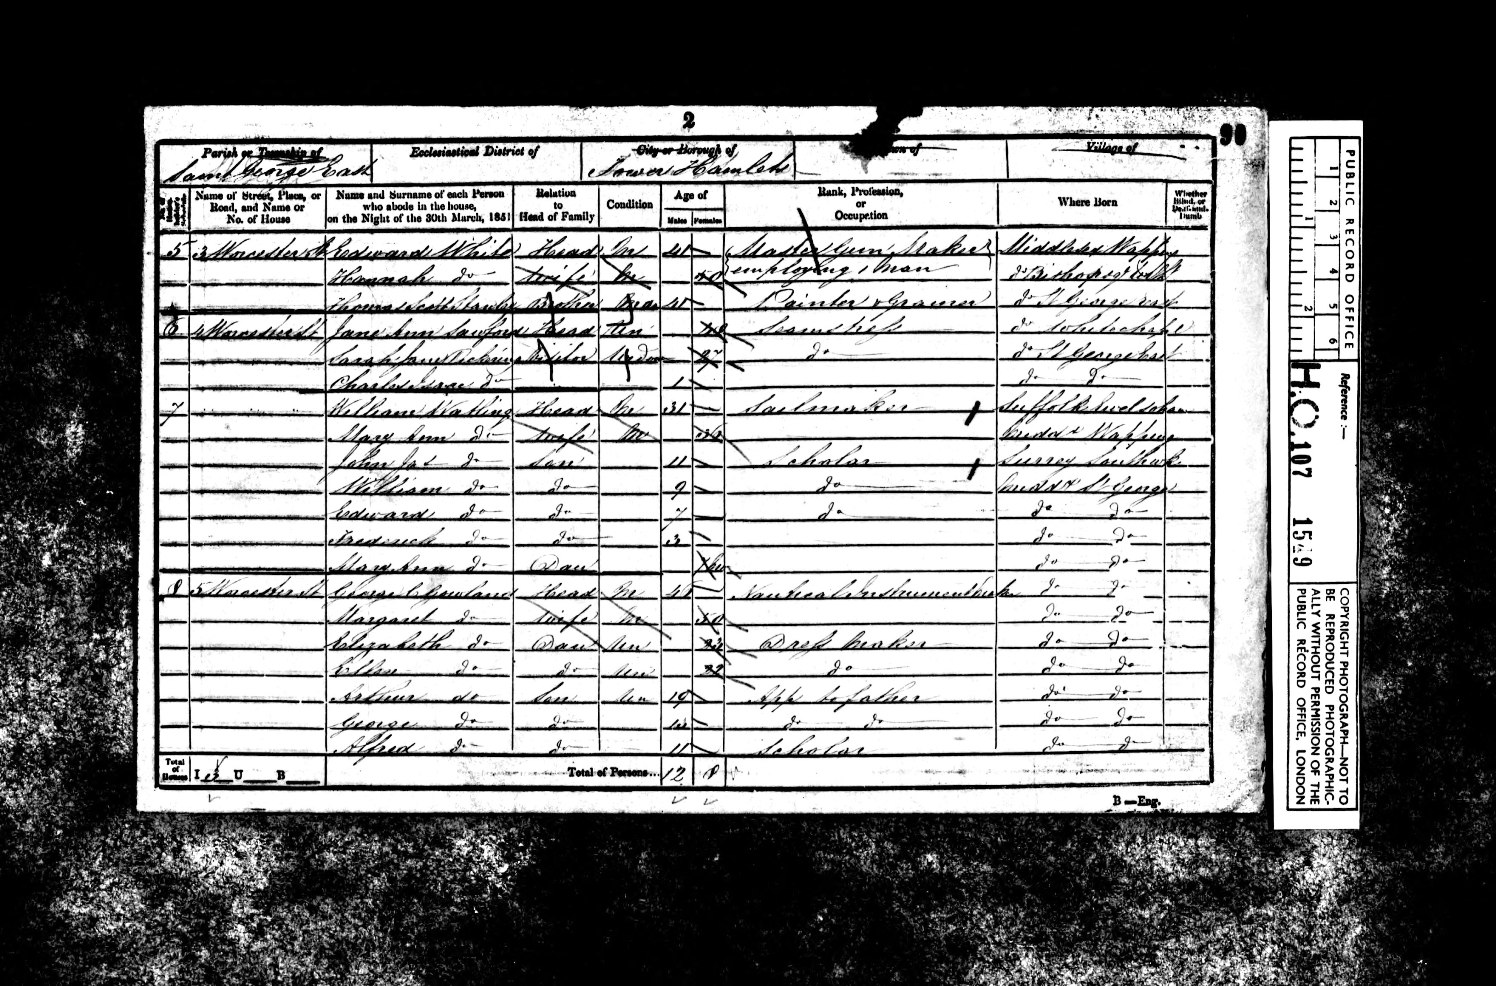 2
90
Parish or Township of Ecclesiastical District of City or Borough of Town of Village of
Saint George East Tower Hamlets
Name of Street, Place, or Road, and Name or No. of House
Name and Surname of each Person who abode in the house, on the Night of the 30th March, 1851
Relation to Head of Family
Condition
Age of
Males Females
Rank, Profession, or Occupation
Where Born
Whether Blind, or Deaf-and-Dumb
5 3 Worcester St Edward White Head M 41 Master Gun Maker Middlesex Wapping
Hannah do Wife M employing 1 man do Bishopsgate
Thomas Scott Brother 40 Painter & Grainer do St George East
6 4 Worcester St Jane Ann Head Un 40 Seamstress do Whitechapel
Sarah Jane Visitor Widow 27 do do St George East
Charles do 1 do do
7 William Watling Head M 31 Sailmaker Suffolk
Mary Ann do Wife M Midd x Wapping
John Jas do Son 11 Scholar Surrey Southwk
William do do 9 do Midd x St George
Edward do do 7 do do do
Frederick do do 3 do do
Mary Ann do Dau do do
8 5 Worcester St George C Gowland Head M Nautical Instrument do do
Margaret do Wife M 50 do do
Elizabeth do Dau Un Dress Maker do do
Ellen do do Un 22 do do do
Arthur do Son Un 19 App to father do do
George do do do do do do
Alfred do do 11 Scholar do do
Total of Houses I U B Total of Persons... 12 8
B—Eng.
PUBLIC RECORD OFFICE
1 2 3 4 5 6
1 2
Reference:—
H.O. 107 1549
COPYRIGHT PHOTOGRAPH—NOT TO
BE REPRODUCED PHOTOGRAPHIC-
ALLY WITHOUT PERMISSION OF THE
PUBLIC RECORD OFFICE, LONDON